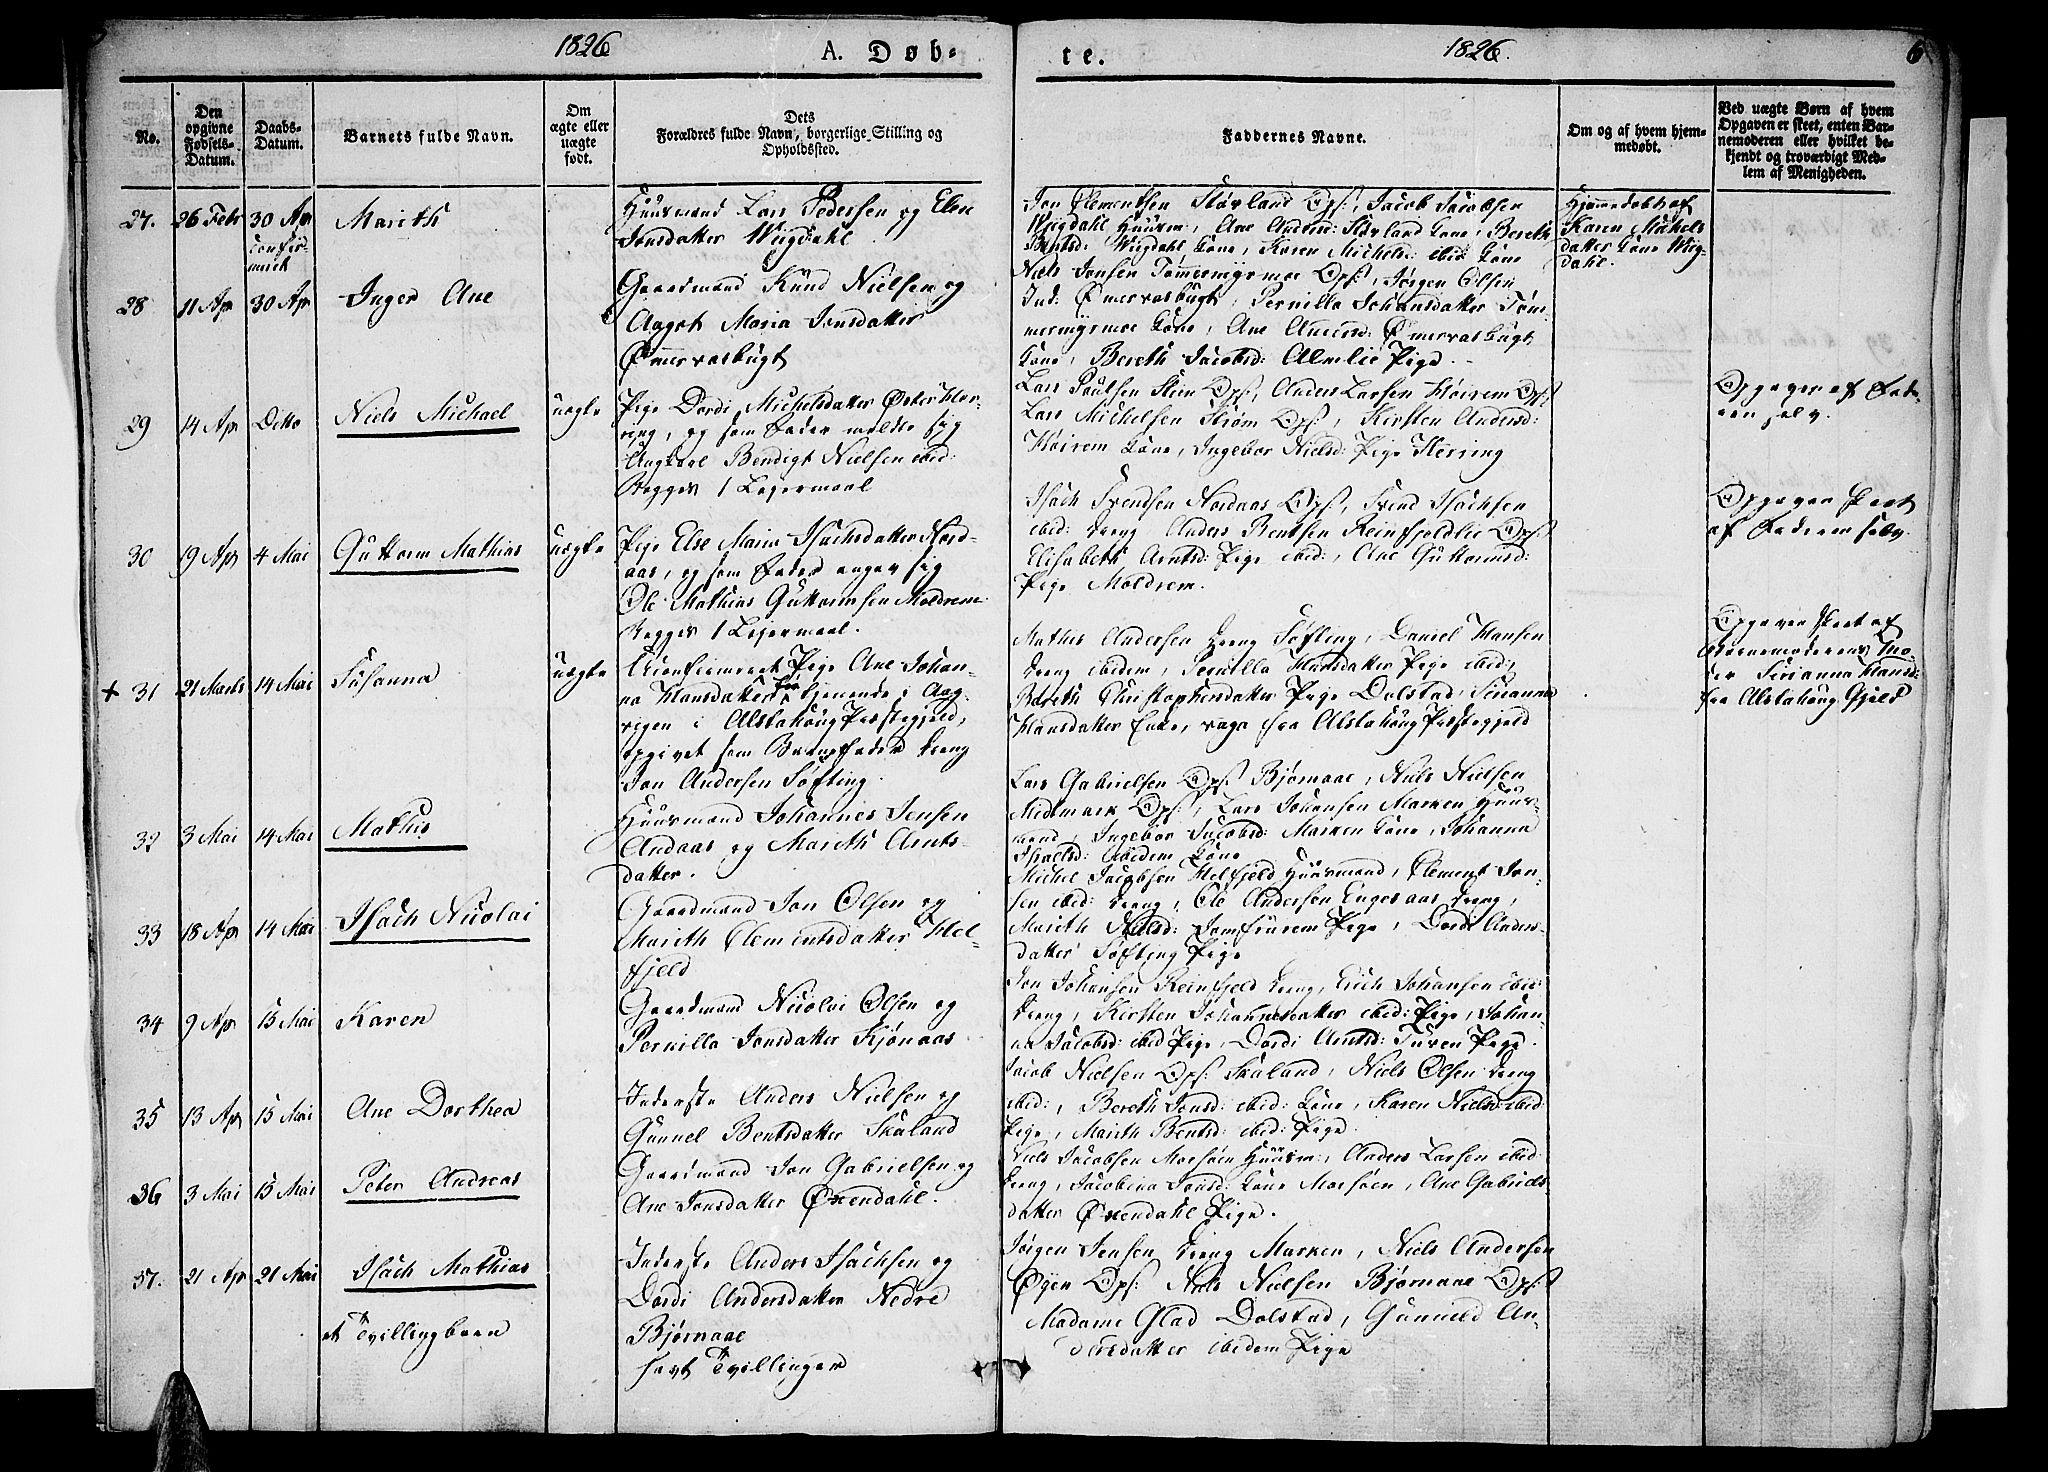 1826 A. Døb- te. 1826. 6
No.
Den opgivne Fødsels-Datum.
Daabs-Datum.
Barnets fulde Navn.
Om ægte eller uægte født.
Dets
Forældres fulde Navn, borgerlige Stilling og
Opholdssted.
Faddernes Navne.
Om og af hvem hjem-
medøbt.
Ved uægte Børn af hvem
Opgaven er skeet, enten Bar-
nemoderen eller hvilket be-
kjendt og troværdigt Med-
lem af Menigheden.
27. 26 Febr 30 Apr confir-meret Marith
Huusmand Lars Pedersen og Elen
Jonsdatter Wugdahl
Jon Clementsen Stovland Ops:, Jacob Jacobsen
Wugdahl Huusm:, Ane Andersd: Stovland Kone, Bereth
Bentsd: Wugdahl Kone, Karen Michelsd: ibid: Kone
Hjemmedøbt af
Karen Michels
datter Kone Wug-
dahl.
28 11 Apr 30 Apr Inger Ane
Gaardmand Knud Nielsen og
Aagot Maria Jonsdatter
Ømmervasbugt
Niels Jonsen Tømmermyrmoe Ops:, Jørgen Olsen
Ind: Ømervasbugt, Pernille Johansdatter Tøm-
mermyrmoe Kone, Ane Andersd: Ømervasbugt
Kone, Bereth Jacobsd: Almlie Pige.
29 14 Apr Ditto Niels Michael uægte
Pige Dordi Michelsdatter Øster Her-
ring, og som Fader meldte sig
Ungkarl Bendigt Nielsen ibid:
Begges 1 Lejermaal
Lars Paulsen Stien Ops:, Anders Larsen Høirem Ops:
Lars Michelsen Strøm Ops:, Kirsten Andersd:
Høirem Kone, Ingebor Nielsd: Pige Herring
Opgaven af Fade-
ren selv.
30 19 Apr 4 Mai Guttorm Mathias uægte
Pige Else Maria Isachsdatter Nord-
aas, og som Fader angav sig
Ole Mathias Guttormsen Moldrem
Begges 1 Lejermaal.
Isach Svendsen Nordaas Ops:, Svend Isachsen
ibid: Dreng Anders Bentsen Reinfjeldlie Ops:
Elisabeth Arntsd: Pige ibid:, Ane Guttormsd:
Pige Moldrem.
Opgaven skeet
af Faderen selv.
+ 31 21 Marts 14 Mai Susanna uægte
Uconfirmeret Pige Ane Johan-
na Hansdatter tjenende i
i Alstahoug Præstegjeld,
opgivet som Barnefader Dreng
Jon Andersen Søfting.
Mathis Andersen Dreng Søfting, Daniel Hansen
Dreng ibidem, Pernilla Hansdatter Pige ibid:,
Bereth Christophersdatter Pige Dolstad, Sirianna
Hansdatter Enke, fra Alstahoug Præstegjeld
Opgaven skeet af
Barnemoderens Mo-
der Sirianna Hansd:
fra Alstahoug Gjeld
32 3 Mai 14 Mai Mathis
Huusmand Johannes Jensen
Andaas og Marith Arnts-
datter.
Lars Gabrielsen Ops: Bjørnaae, Niels Nielsen
Midtmark Ops:, Lars Johansen Marken Huus-
mand, Ingebor Jacobsd: Marken Kone, Johanna
ibidem Kone
33 18 Apr 14 Mai Isach Nicolai
Gaardmand Jon Olsen og
Marith Clementsdatter Hel-
fjeld
Michel Jacobsen Helfjeld Huusmand, Clement Jon-
sen ibid: Dreng, Ole Andersen Engesaas Dreng,
Marith Nielsd: Jomfrurem Pige, Dordi Anders-
datter Søfting Pige
34 9 Apr 15 Mai Karen
Gaardmand Nicolai Olsen og
Pernilla Jonsdatter Kjønaas
Jon Johansen Reinfjeld Dreng, Erich Johansen ibid:
Dreng, Kirsten Johannesdatter ibid: Pige, Johan-
na Jacobsd: ibid Pige, Dordi Arntsd: Turen Pige.
35 13 Apr 15 Mai Ane Dorthea
Inderste Anders Nielsen og
Gunnel Bentsdatter Skaland
Jacob Nielsen Ops: Skaland, Niels Olsen Dreng
ibid:, Bereth Jonsd: ibid: Kone, Karen Nielsd: ibid:
Pige, Marith Bentsd: ibid: Pige.
36 3 Mai 15 Mai Peter Andreas
Gaardmand Jon Gabrielsen og
Ane Jonsdatter Øxendahl.
Niels Jacobsen Mosøien Huusm:, Anders Larsen ibid:
Dreng, Jacobina Jonsd: Kone Mosøien, Ane Gabriels-
datter Øxendahl Pige.
37. 21 Apr 21 Mai Isach Mathias
et Tvillingbarn
Inderste Anders Isachsen og
Dordi Andersdatter Nedre
Bjørnaae
havt Tvillinger
Jørgen Jensen Dreng Marken, Niels Andersen
Øyen Ops: Niels Nielsen Bjørnaae Ops:
Madame Glad Dolstad, Gunnild An-
dersdatter ibidem Pige